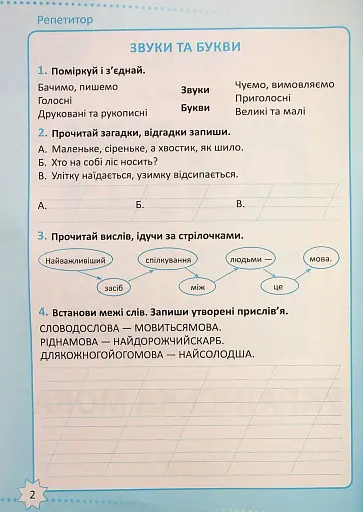 Репетитор
ЗВУКИ ТА БУКВИ
1. Поміркуй і з’єднай.
Бачимо, пишемо
Голосні
Друковані та рукописні
Звуки
Букви
Чуємо, вимовляємо
Приголосні
Великі та малі
2. Прочитай загадки, відгадки запиши.
А. Маленьке, сіреньке, а хвостик, як шило.
Б. Хто на собі ліс носить?
В. Улітку наїдається, узимку відсипається.
А. Б. В.
3. Прочитай вислів, ідучи за стрілочками.
Найважливіший спілкування людьми — мова.
засіб між це
4. Встанови межі слів. Запиши утворені прислів’я.
СЛОВОДОСЛОВА — МОВИТЬСЯМОВА.
РІДНАМОВА — НАЙДОРОЖЧИЙСКАРБ.
ДЛЯКОЖНОГОЙОГОМОВА — НАЙСОЛОДША.
2